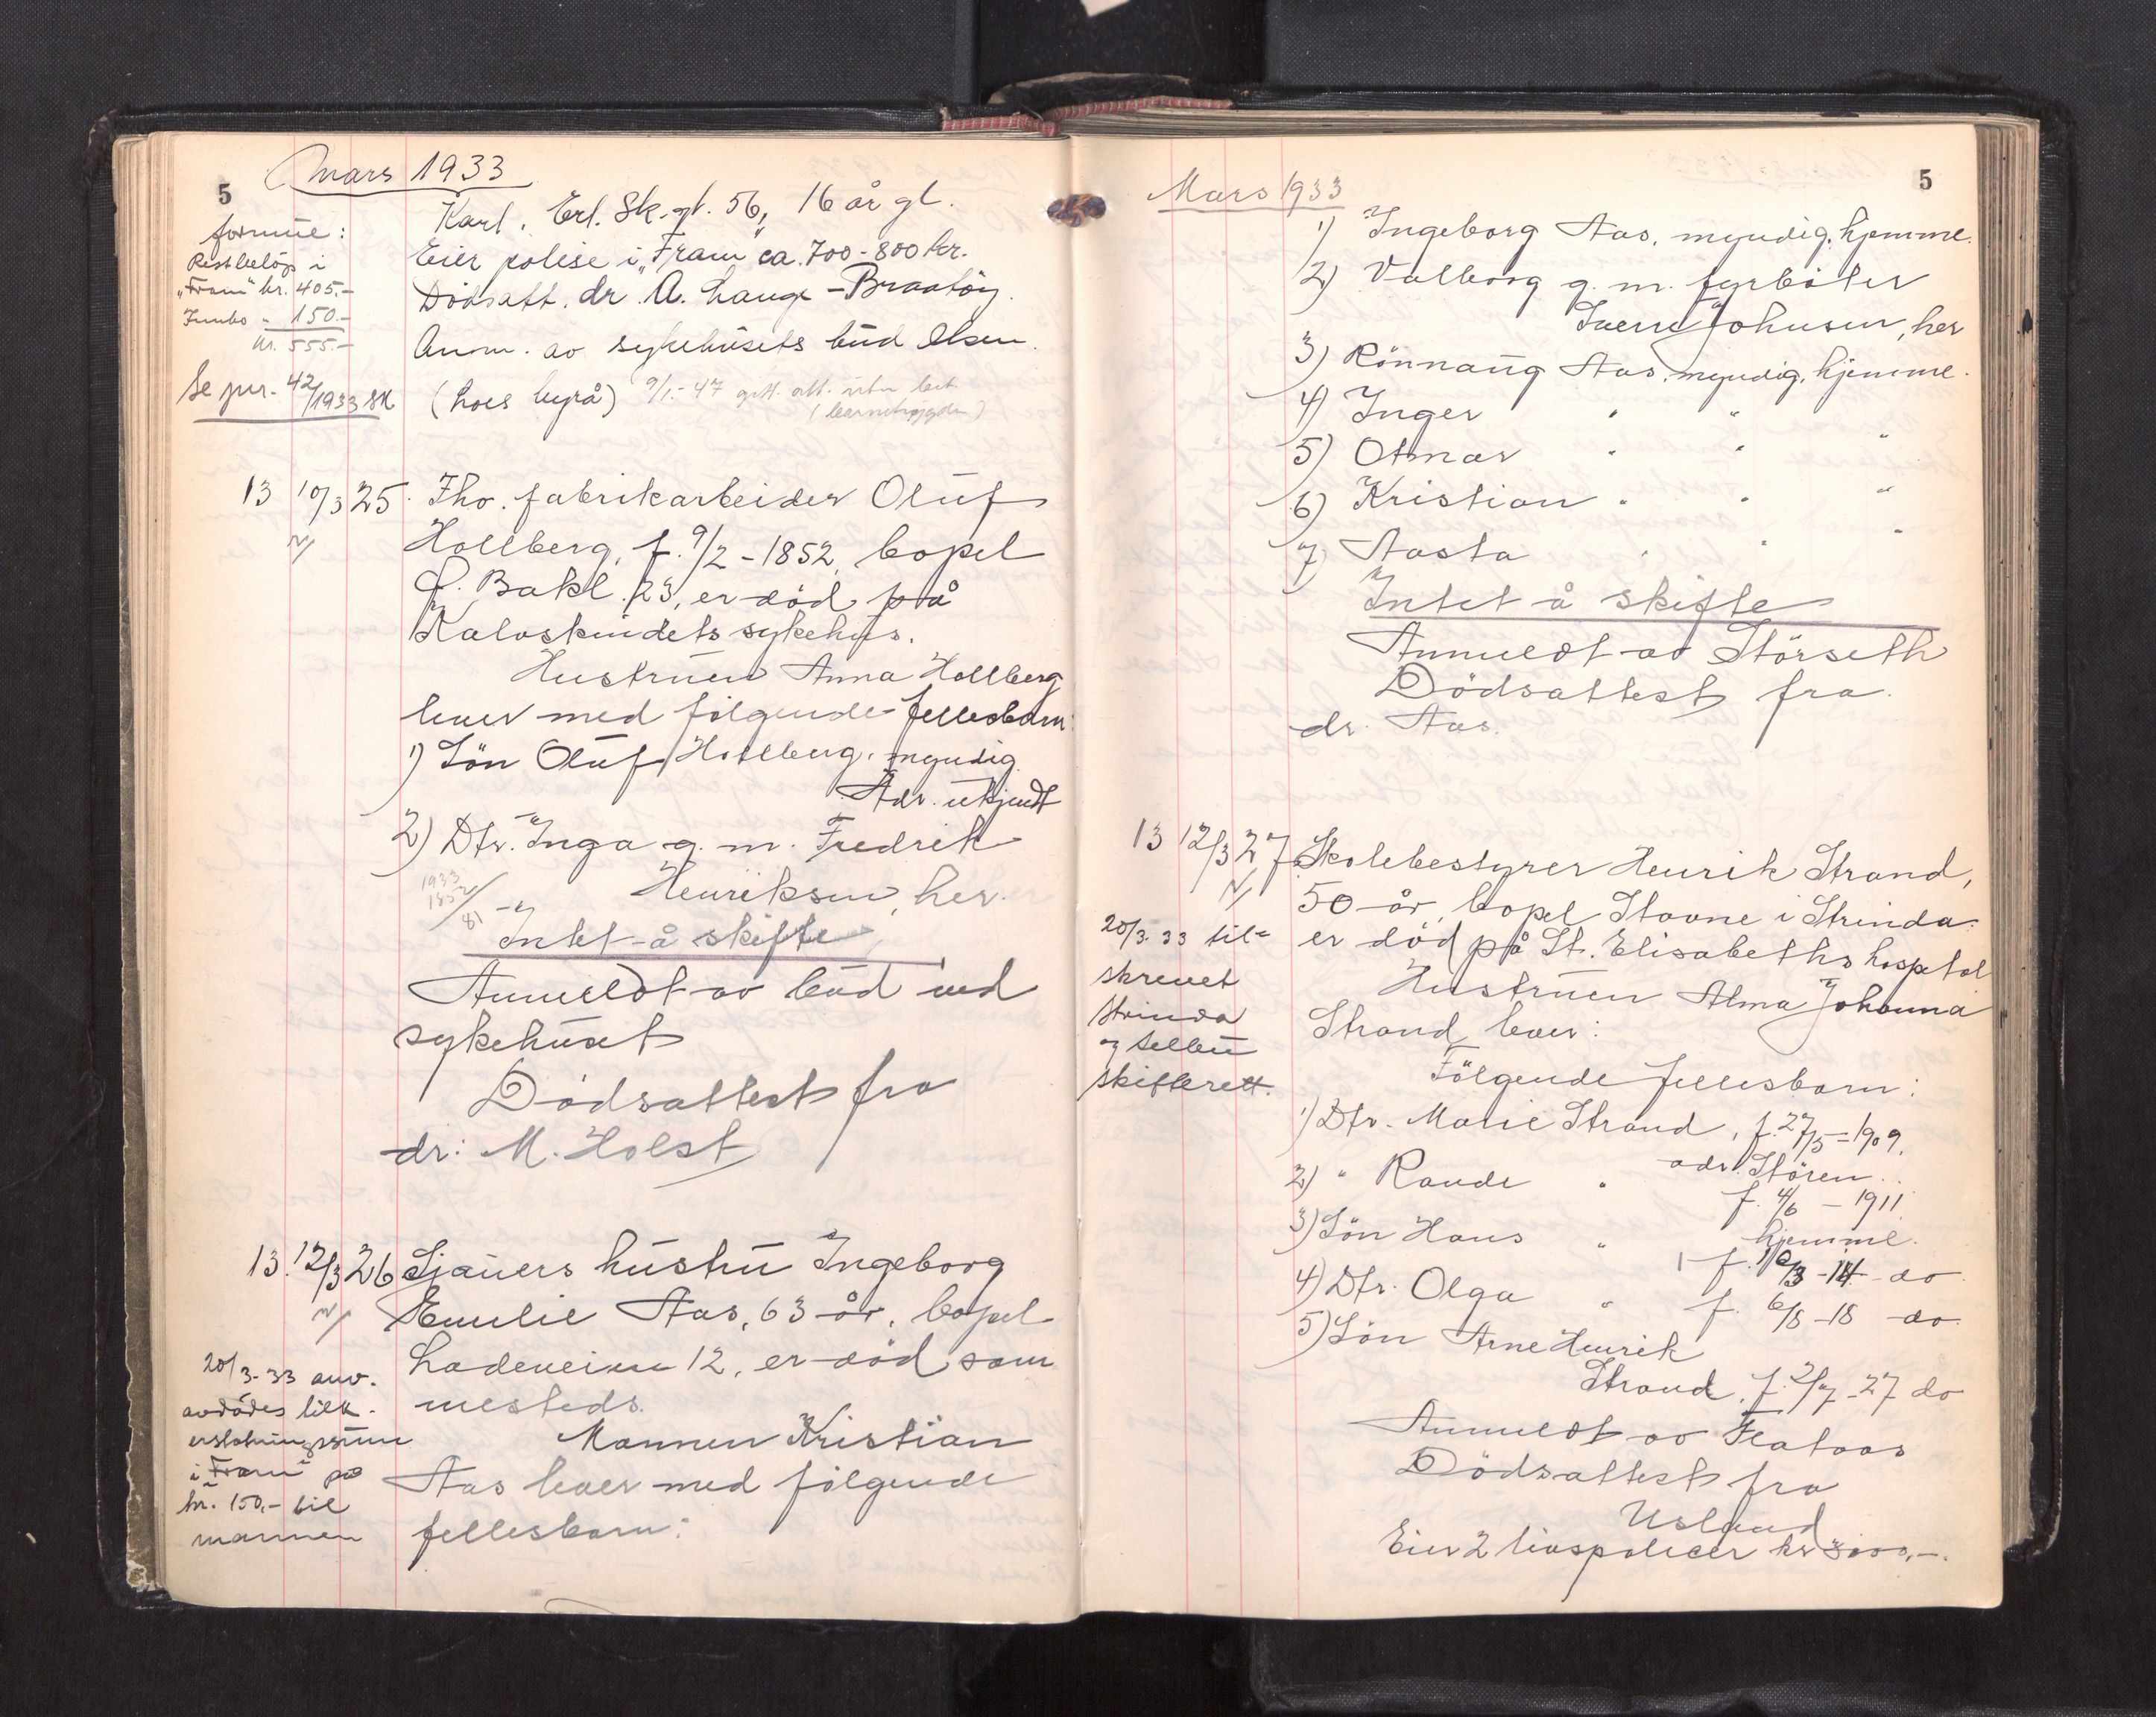 5
mars 1933
formue:
Restbeløp i
"Fram" kr. 405.-
Jumbo - 150.-
kr. 555.-
Se jnr. 42/1933 SK
Karl, Erl. Sk. gt. 56, 16 år gl.
Eier polise i "Fram" ca. 700-800 kr.
Dödsatt. dr. A. Lange-Braatöy.
Anm. av sykehusets bud Olsen.
(hoes byrå) 9/1-47 att.
13 10/3 25. Fhv. fabrikarbeider Oluf
Hollberg, f. 9/2-1852, bopel
Bakl. 23, er död på
Kalvskindets sykehus.
Hustruen Anna Hollberg
lever med følgende fellesbarn:
1) Sön Oluf Hollberg, myndig
Adr. ukjendt
2) Dtr. Inga g. m. Fredrik
Henriksen, her.
1933
1852
81
Intet å skifte
Anmeldt av bud ved
sykehuset
Dödsattest fra
dr: M. Holst
13. 12/3 26 Sjauers hustru Ingeborg
Emilie Aas, 63 år, bopel
Ladeveien 12, er död sam
mesteds.
Mannen Kristian
Aas lever med følgende
fellesbarn:
20/3-33 anv.
avdödes
i "Fram" på
kr. 150,- til
mannen
5
Mars 1933
1) Ingeborg Aas, myndig, hjemme.
2) Valborg g. m. fyrböter
Sverre Johnsen, her
3) Rönnaug Aas, myndig, hjemme.
4) Inger " "
5) Otmar " " "
6) Kristian " " "
7) Aasta " " "
Intet å skifte
Anmeldt av Störseth
Dödsattest fra
dr. Aas.
13 12/3 27 Skolebestyrer Henrik Strand,
50 år, bopel Stavne i Strinda
er död på St. Elisabeths hospital
Hustruen Alma Johanna
Strand lever:
Fölgende fellesbarn:
20/3-33 til-
skrevet
Strinda
og Selbu
skifterett.
1) Dtr. Marie Strand, f. 27/5-1909,
adr. Stören.
2) " Rande " f. 4/6 - 1911
hjemme.
3) Sön Hans " f. do
4) Dtr. Olga " f. 6/8-18 do
5) Sön Arne Henrik
Strand, f. 2/7-27 do
Anmeldt av Flataas
Dödsattest fra
Usland
Eier 2 livspolicer kr 3000,-.